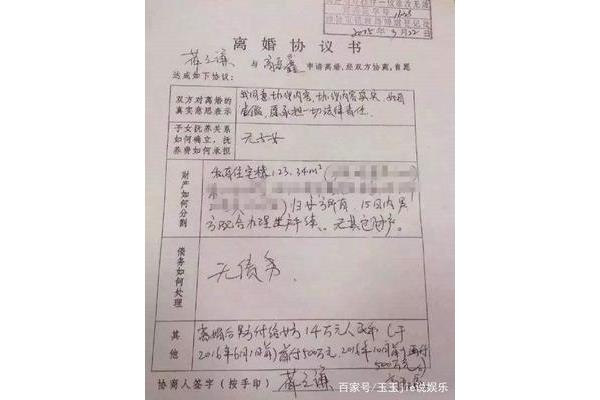 2015年9月22日
离婚协议书
薛之谦 与 高磊鑫 申请离婚,经双方协商,自愿
达成如下协议:
双方对离婚的
真实意思表示
我同意协议内容,协议内容真实,如有
虚假,愿承担一切法律责任.
子女抚养关系
如何确立,抚
养费如何承担
无子女
财产如何分割
私有住宅楼123.34m²(
)归女方所有,15日内男
方配合办理过户手续。无其它财产。
债务如何处理
无债务
其他
离婚后男方付给女方14万元人民币(于
2016年6月1日前)首付500万元,2016年10月前再付
500万元
协商人签字(按手印)
薛之谦
百家号/玉玉jie说娱乐